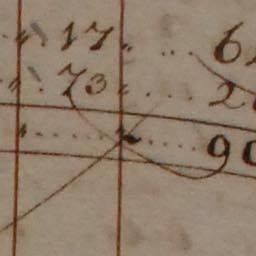 " 17 " ... 6
" 73 " .... 2
" ..... " ..... 90